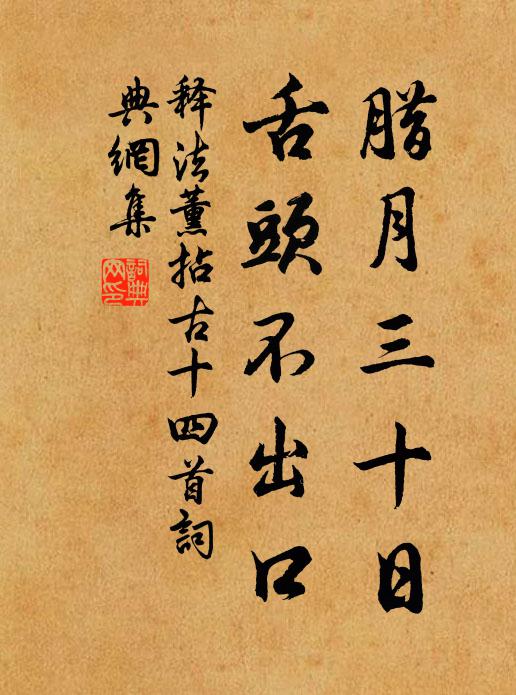 腊月三十日
舌頭不出口
释法薰拈古十四首詞
典網集
詞典
网印